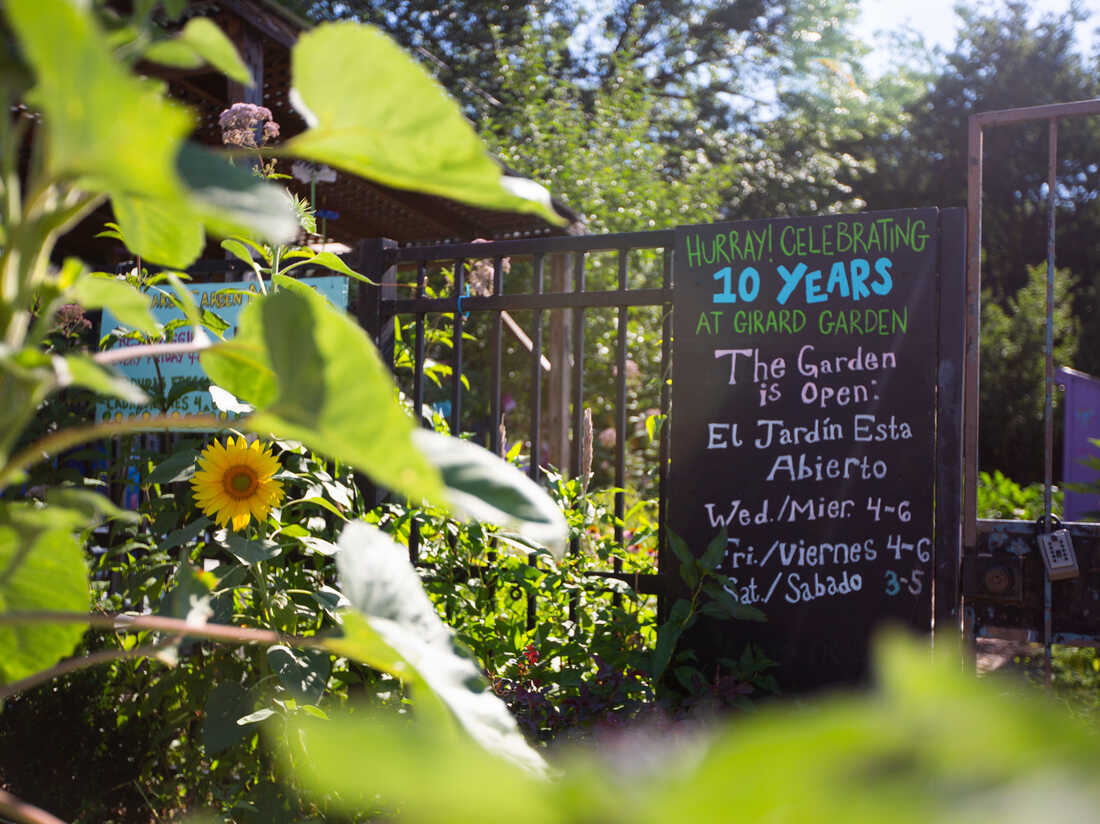 HURRAY! CELEBRATING
10 YEARS
AT GIRARD GARDEN
The Garden
is Open:
El Jardín Esta
Abierto
Wed./Mier. 4-6
Fri./Viernes 4-6
Sat./Sabado 3-5